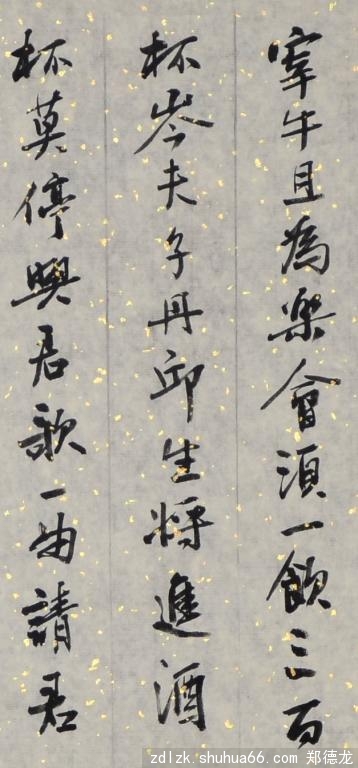 宰牛且為樂會須一飲三百
杯岑夫子丹邱生將進酒
杯莫停與君歌一曲請君
zdlzk.shuhua66.com 郑德龙